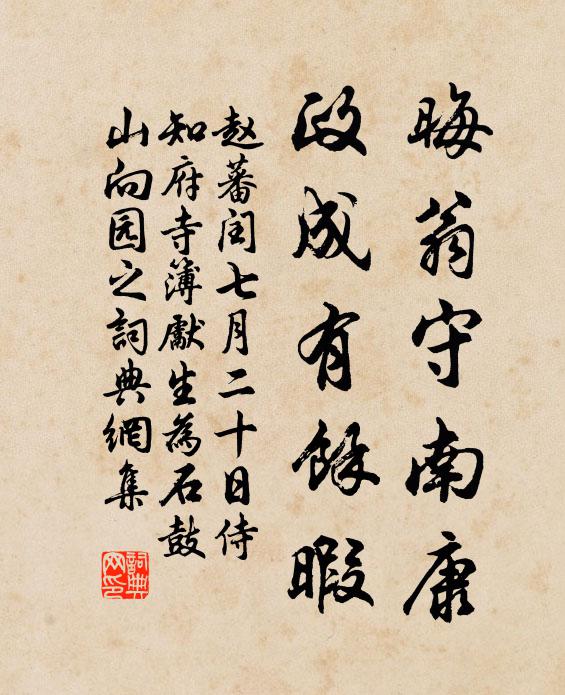 晦翁守南康
政成有餘暇
赵蕃闰七月二十日侍
知府寺簿獻生為石鼓
山向园之詞典網集
詞典网印